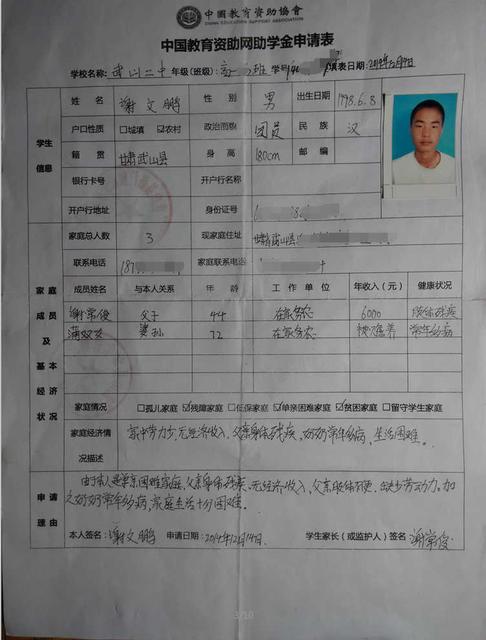 中國教育資助協會
CHINA EDUCATION SUPPORT ASSOCIATION
中国教育资助网助学金申请表
学校名称: 武山二中 年级(班级): 高 班 学号 填表日期:
学生信息
姓名 谢文鹏 性别 男 出生日期 1998.6.8
户口性质 □城镇 ☑农村 政治面貌 团员 民族 汉
籍贯 甘肃武山县 身高 180cm 邮编
银行卡号 开户行名称
开户行地址 身份证号
家庭成员及基本经济状况
家庭总人数 3 现家庭住址 甘肃武山县
联系电话 187 家庭联系电话
成员姓名 与本人关系 年龄 工作单位 年收入(元) 健康状况
谢常俊 父子 44 在家务农 6000 肢体残疾
婆孙 72 在家务农 常年多病
家庭情况 □孤儿家庭 ☑残障家庭 □低保家庭 ☑单亲困难家庭 ☑贫困家庭 □留守学生家庭
家庭经济情况描述 家中劳力少,无经济收入,父亲身体残疾,奶奶常年多病,生活困难。
申请理由
由于本人是单亲困难家庭,父亲身体残疾,无经济收入,父亲肢体不便,缺少劳动力。加
之奶奶常年多病,家庭生活十分困难。
本人签名: 谢文鹏 申请日期: 2014年12月14日. 学生家长(或监护人)签名 谢常俊
3/10